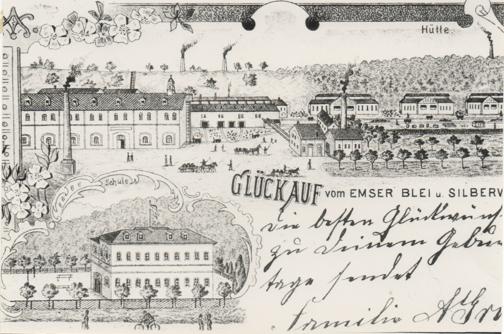 Hütte.
Schule.
GLÜCKAUF VOM EMSER BLEI U. SILBERW
Die besten Glückwünsc
zu Deinem Gebur
tage sendet
Familie